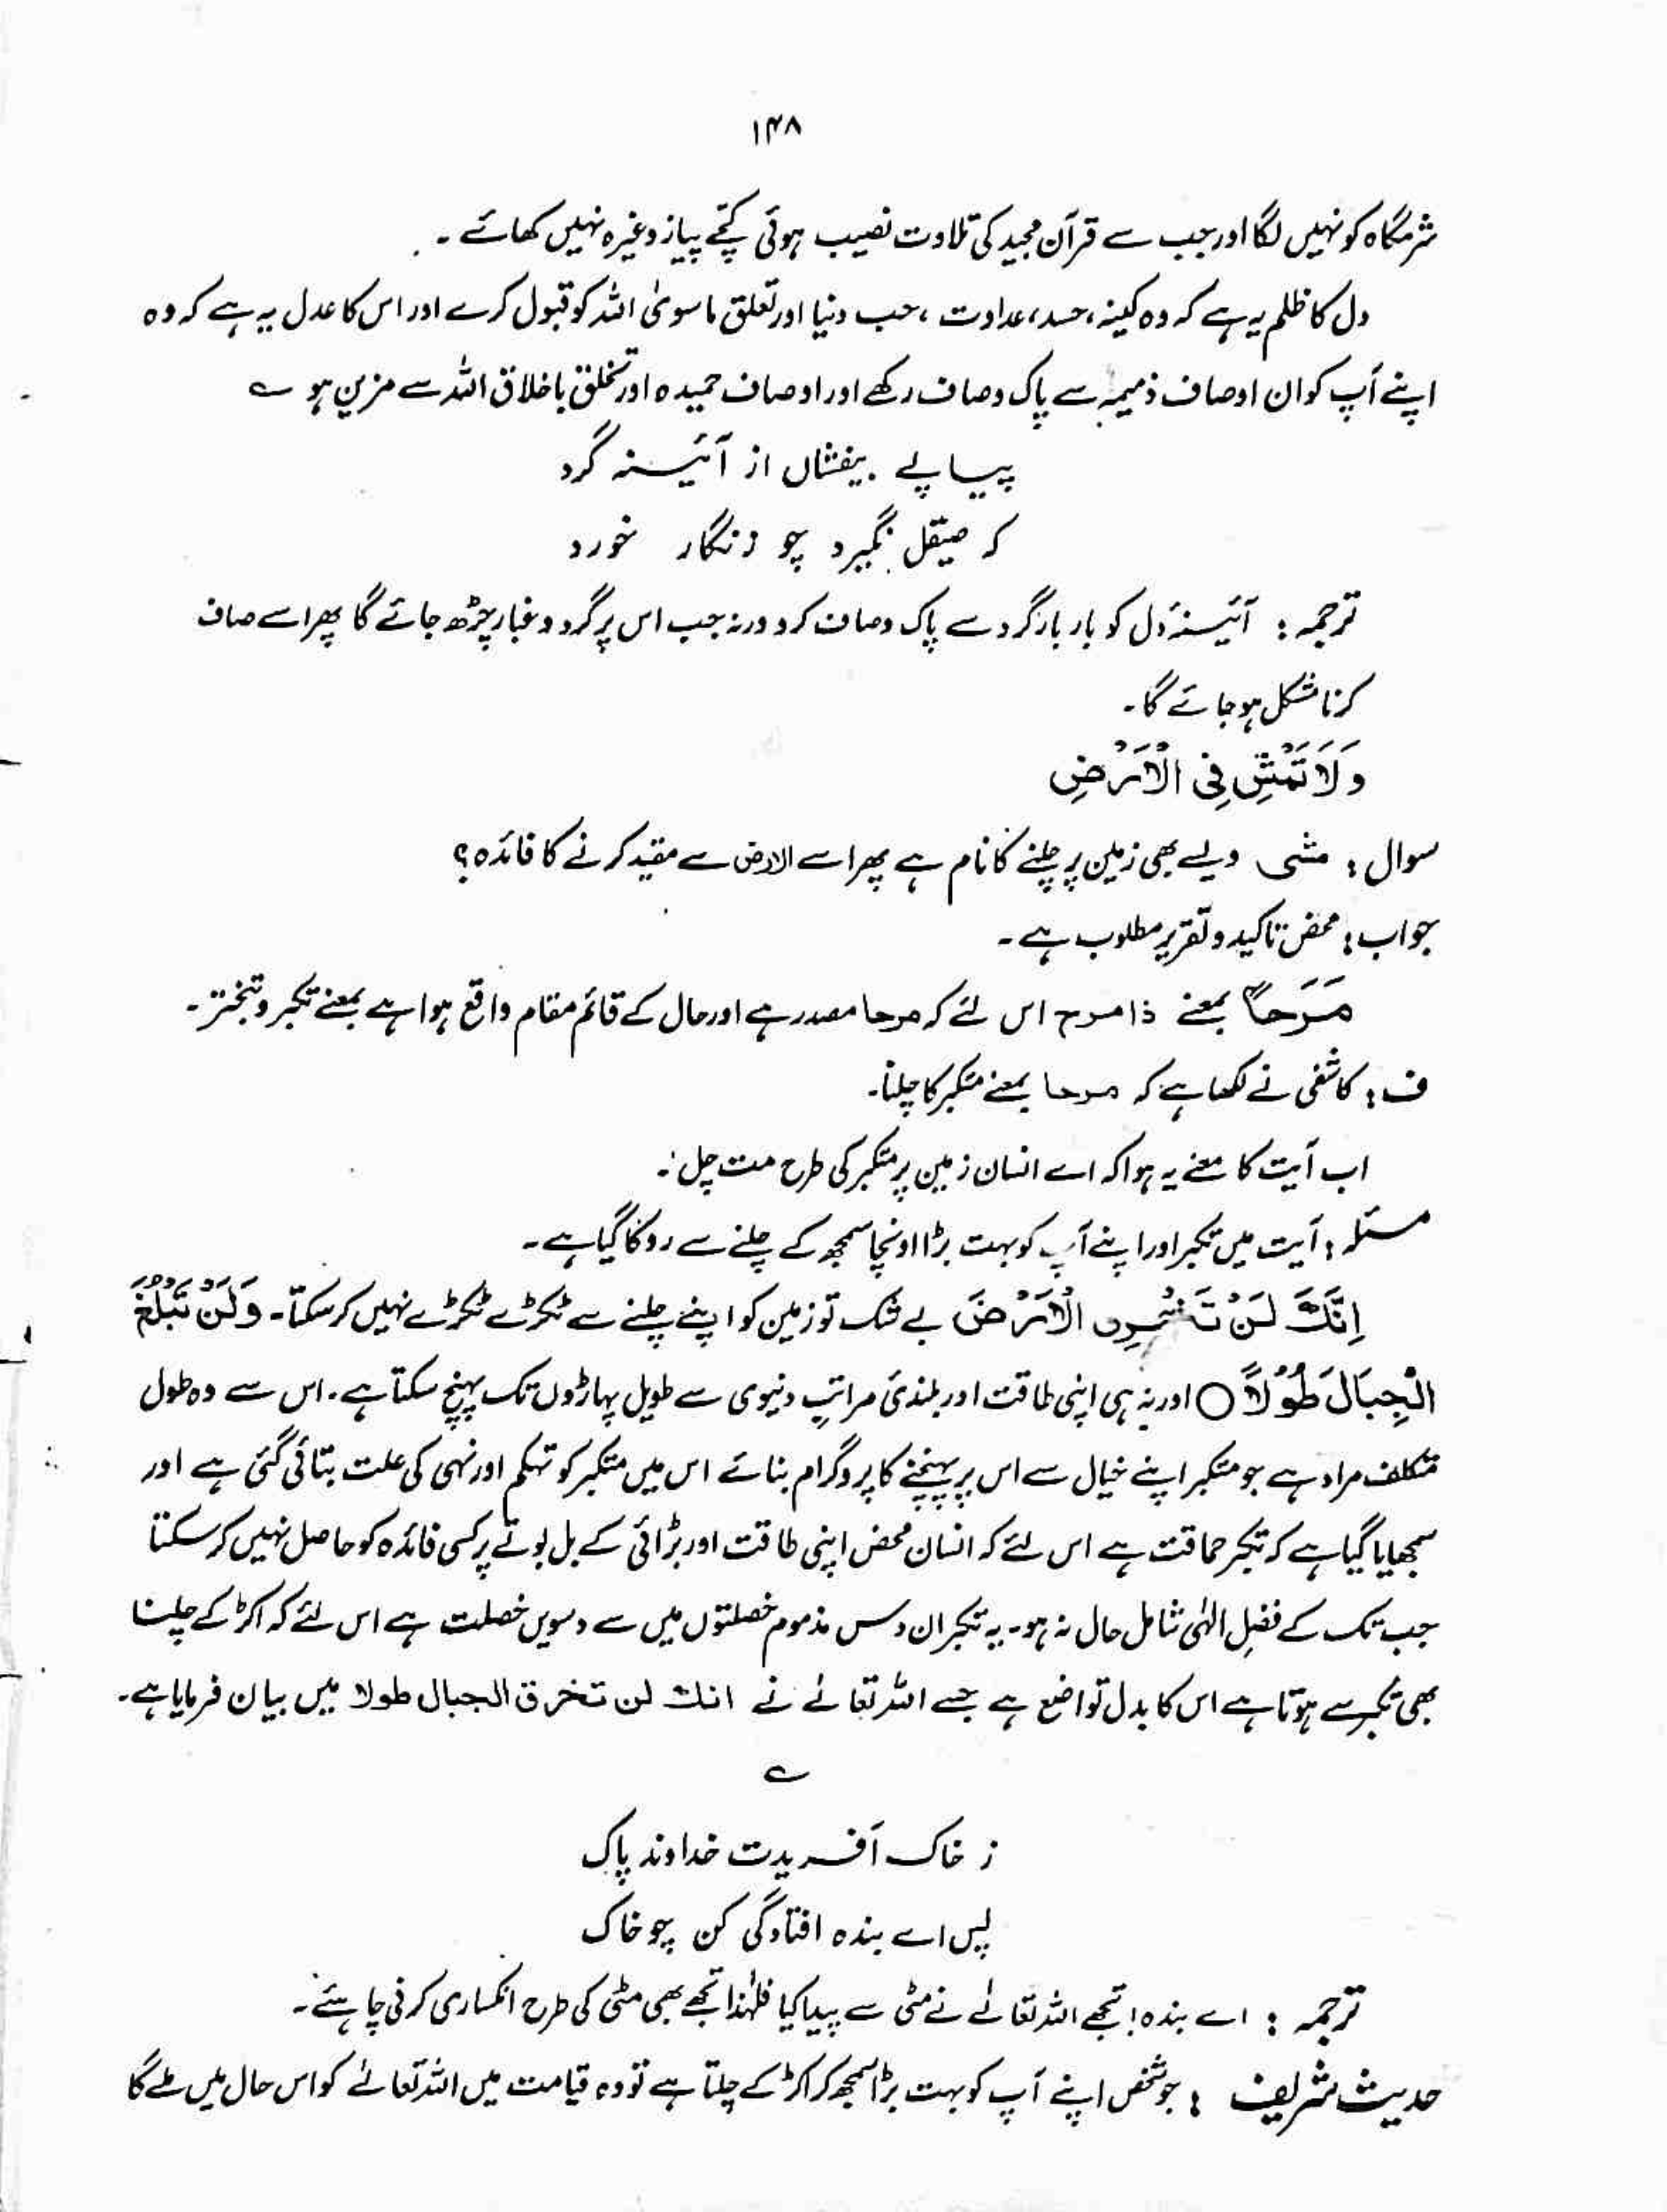 ۱۴۸
شرمگاہ کو نہیں لگا اور جب سے قرآن مجید کی تلاوت نصیب ہوئی کچے پیاز وغیرہ نہیں کھائے ۔
دل کا ظلم یہ ہے کہ وہ کینہ، حسد، عداوت، حب دنیا اور تعلق ماسویٰ اللہ کو قبول کرے اور اس کا عدل یہ ہے کہ وہ
اپنے آپ کو ان اوصاف ذمیمہ سے پاک وصاف رکھے اور اوصاف حمیدہ اور تخلق باخلاق اللہ سے مزین ہو ؎
پیاپے بیفشاں از آئینہ گرد
کہ صیقل نگیرد چو زنگار خورد
ترجمہ : آئینۂ دل کو بار بار گرد سے پاک وصاف کرو ورنہ جب اس پر گرد وغبار چڑھ جائے گا پھر اسے صاف
کرنا مشکل ہو جائے گا۔
وَلَا تَمْشِ فِی الْاَرْضِ
سوال : مشی ویسے بھی زمین پر چلنے کا نام ہے پھر اسے الارض سے مقید کرنے کا فائدہ ؟
جواب : محض تاکید و تقریر مطلوب ہے ۔
مَرَحًا بمعنے ذا مرح اس لئے کہ مرحا مصدر ہے اور حال کے قائم مقام واقع ہوا ہے بمعنے تکبر و تبختر ۔
ف : کاشفی نے لکھا ہے کہ مرحا بمعنے متکبر کا چلنا۔
اب آیت کا معنے یہ ہوا کہ اے انسان زمین پر متکبر کی طرح مت چل ۔
مسئلہ : آیت میں تکبر اور اپنے آپ کو بہت بڑا اونچا سمجھ کے چلنے سے روکا گیا ہے ۔
اِنَّکَ لَنْ تَخْرِقَ الْاَرْضَ بے شک تو زمین کو اپنے چلنے سے ٹکڑے ٹکڑے نہیں کر سکتا ۔ وَلَنْ تَبْلُغَ
الْجِبَالَ طُوْلًا ○ اور نہ ہی اپنی طاقت اور بلندئ مراتبِ دنیوی سے طویل پہاڑوں تک پہنچ سکتا ہے ۔ اس سے وہ طول
متکلف مراد ہے جو متکبر اپنے خیال سے اس پر پہنچنے کا پروگرام بنائے اس میں متکبر کو تہکم اور نہی کی علت بتائی گئی ہے اور
سمجھایا گیا ہے کہ تکبر حماقت ہے اس لئے کہ انسان محض اپنی طاقت اور بڑائی کے بل بوتے پر کسی فائدہ کو حاصل نہیں کر سکتا
جب تک کے فضلِ الٰہی شامل حال نہ ہو ۔ یہ تکبر ان دس مذموم خصلتوں میں سے دسویں خصلت ہے اس لئے کہ اکڑ کے چلنا
بھی تکبر سے ہوتا ہے اس کا بدل تواضع ہے جسے اللہ تعالےٰ نے انک لن تخرق الجبال طولا میں بیان فرمایا ہے ۔
؎
ز خاک آفریدت خداوند پاک
پس اے بندہ افتادگی کن چو خاک
ترجمہ : اے بندہ ! تجھے اللہ تعالےٰ نے مٹی سے پیدا کیا فلہٰذا تجھے بھی مٹی کی طرح انکساری کرنی چاہئے ۔
حدیث شریف : جو شخص اپنے آپ کو بہت بڑا سمجھ کر اکڑ کے چلتا ہے تو وہ قیامت میں اللہ تعالےٰ کو اس حال میں ملے گا